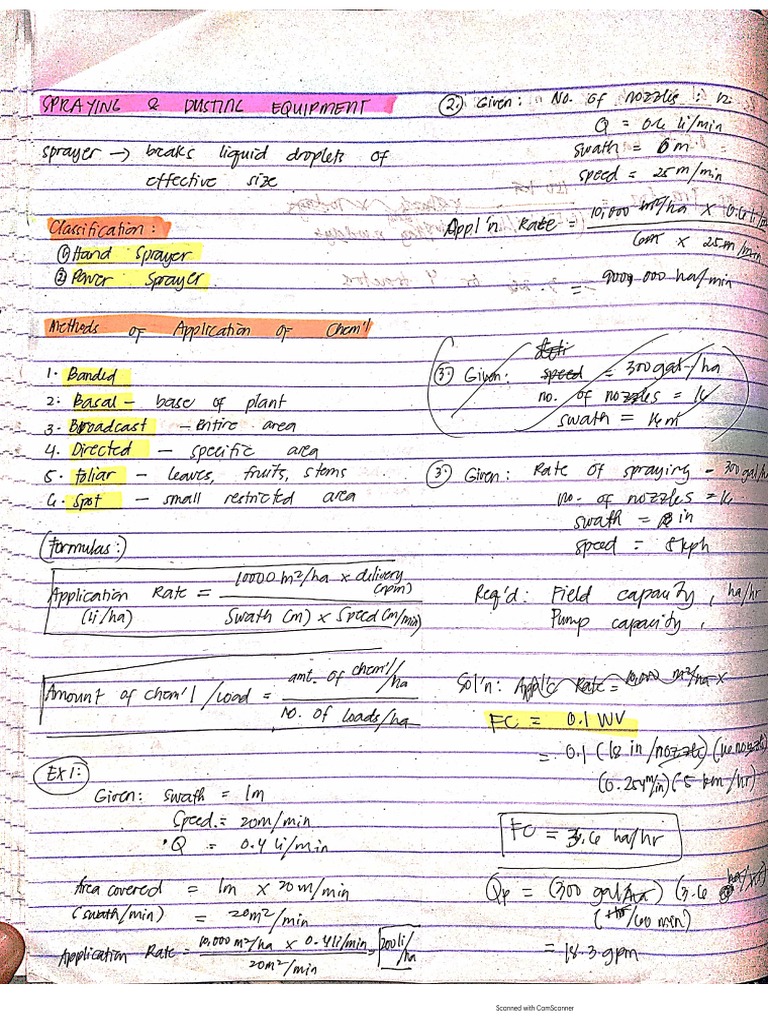 SPRAYING & DUSTING EQUIPMENT
sprayer → breaks liquid droplets of
effective size
Classification:
① Hand Sprayer
② Power Sprayer
Methods of Application of Chem'l
1. Banded
2. Basal - base of plant
3. Broadcast - entire area
4. Directed - specific area
5. foliar - leaves, fruits, stems
6. Spot - small restricted area
(Formulas:)
Application Rate = 10000 m²/ha x delivery
(li/ha) Swath (m) x Speed (m/min)
Amount of chem'l / load = amt. of chem'l/ha
No. of loads/ha
Ex 1:
Given: swath = 1m
Speed = 20m/min
Q = 0.4 li/min
Area covered = 1m x 20 m/min
(swath/min) = 20m²/min
Application Rate = 10,000 m²/ha x 0.4 li/min = 200 li/ha
20m²/min
② Given: No. of nozzles : 12
Q = 0.6 li/min
swath = 6 m
speed = 25 m/min
Appl'n Rate = 10,000 m²/ha x 0.6 li/
6m x 25 m/min
= 000 ha/min
③ Given: speed = 300 gal/ha
no. of nozzles = 16
swath =
③ Given: Rate of spraying - 300 gal/h
no. of nozzles = 16
swath = in
speed = kph
Req'd: Field capacity, ha/hr
Pump capacity,
Sol'n: Applic Rate = 10,000 m²/ha x
FC = 0.1 WV
= 0.1 (18 in/nozzle) (16 nozz
(0.254 m/in) (5 km/hr)
FC = 3.6 ha/hr
Qp = (300 gal/ha) (3.6 ha/hr)
(hr/60 min)
= 18.3 gpm
Scanned with CamScanner